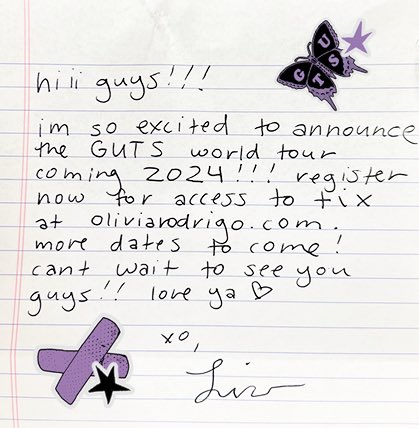 GUTS
hiii guys!!!
im so excited to announce
the GUTS world tour
coming 2024!!! register
now for access to tix
at oliviarodrigo.com.
more dates to come!
cant wait to see you
guys!! love ya ♡
xo,
Liv